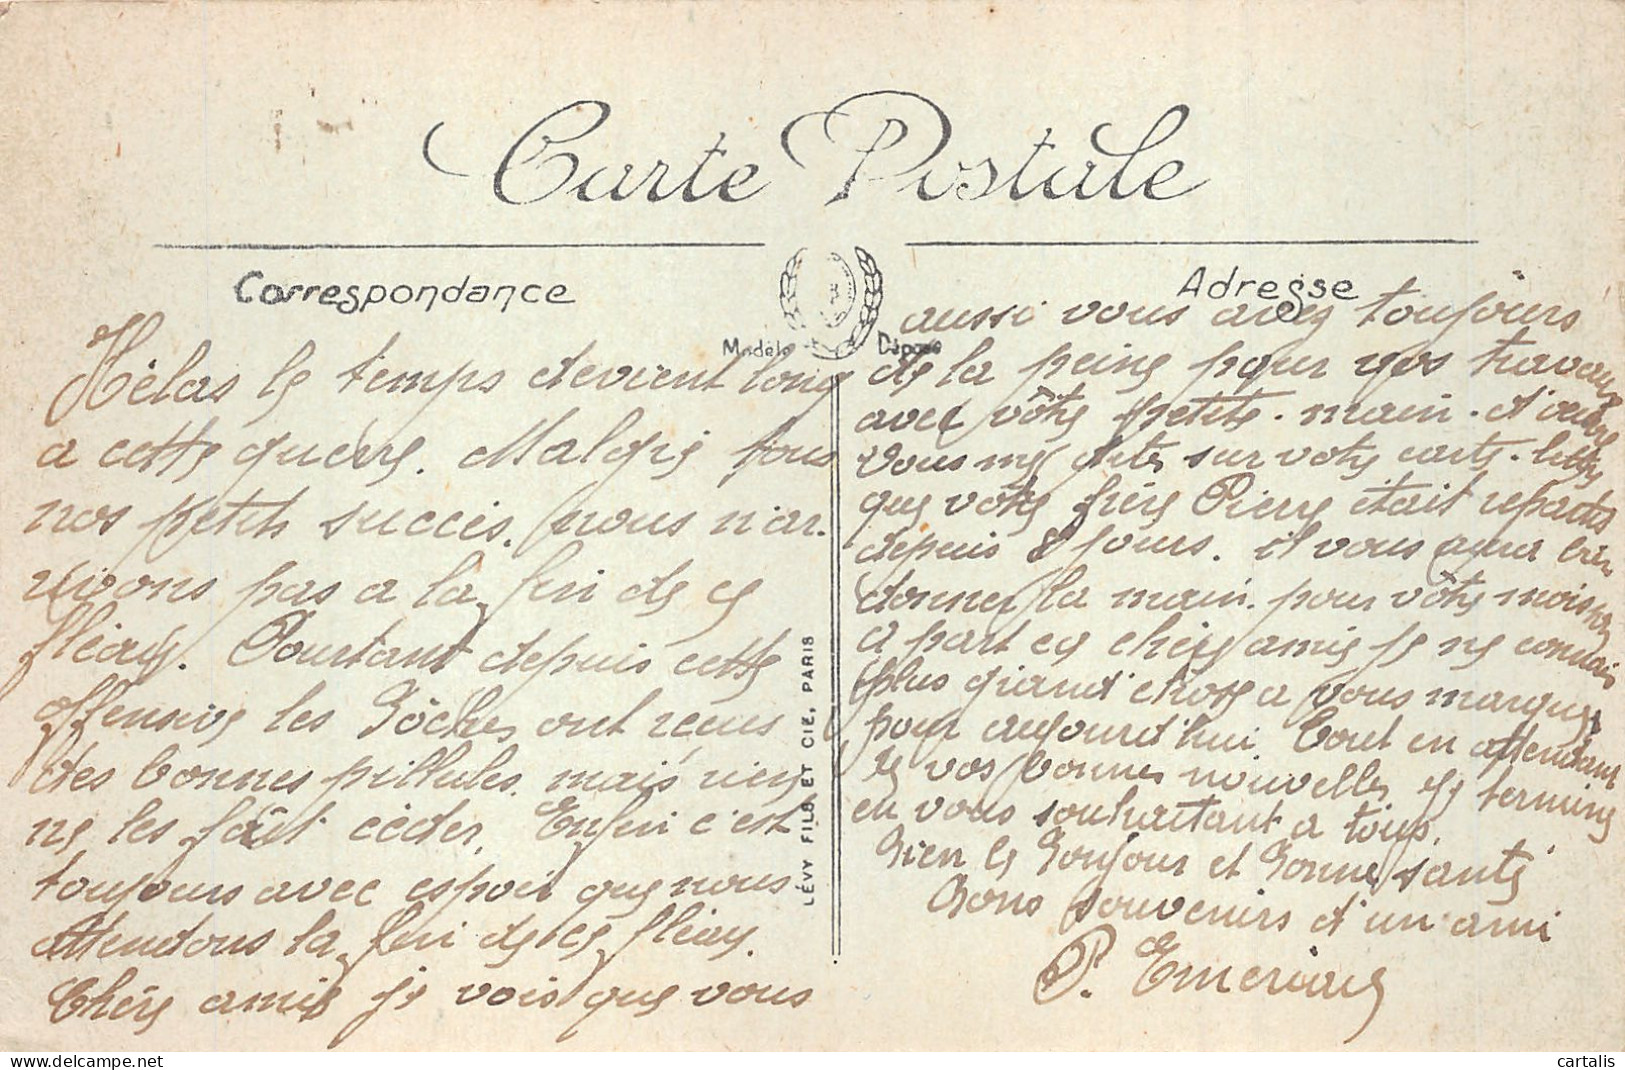 Carte Postale
Correspondance
Adresse
Modèle Déposé
LÉVY FILS ET CIE, PARIS
Hélas le temps devient long
a cette guerre. Malgré tous
nos petits succès, nous n'ar-
rivons pas a la fin de ce
fléau. Pourtant depuis cette
offensive les Bôches ont reçus
des bonnes pillules. mais rien
ne les fait céder. Enfin c'est
toujours avec espoir que nous
attendons la fin de ce fléau.
Chère amie je vois que vous
aussi vous avez toujours
de la peine pour vos travaux
avec vôtre petite-main-d'œuvre
vous me dites sur votre carte-lettre
que vôtre frère Pierre était reparti
depuis 8 jours. il vous aura bien
donner la main pour vôtre moisson
a part ce chère amie je ne connais
plus grand chose a vous marquer
pour aujourd'hui. Tout en attendant
de vos bonnes nouvelles je termine
en vous souhaitant a tous.
Bien le Bonjour et Bonne santé
Bons souvenirs d'un ami
P.
cartalis